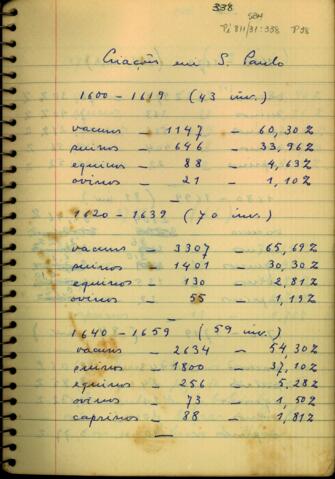 338
SBH
Pi 811/31:338 P98
Criações em S. Paulo
1600 - 1619 (43 inv.)
vacuns - 1147 - 60,30%
suinos - 646 - 33,96%
equinos - 88 - 4,63%
ovinos - 21 - 1,10%
1620 - 1639 (70 inv.)
vacuns - 3307 - 65,69%
suinos - 1401 - 30,30%
equinos - 130 - 2,81%
ovinos - 55 - 1,19%
1640 - 1659 (59 inv.)
vacuns - 2634 - 54,30%
suinos - 1800 - 37,10%
equinos - 256 - 5,28%
ovinos - 73 - 1,50%
caprinos - 88 - 1,81%